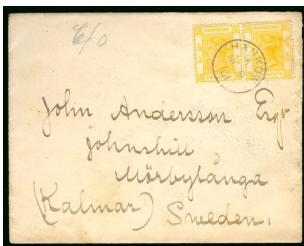 C/o
HANKOW
John Andersson Esqr
Johnshill
Mörbylånga
(Kalmar) Sweden.